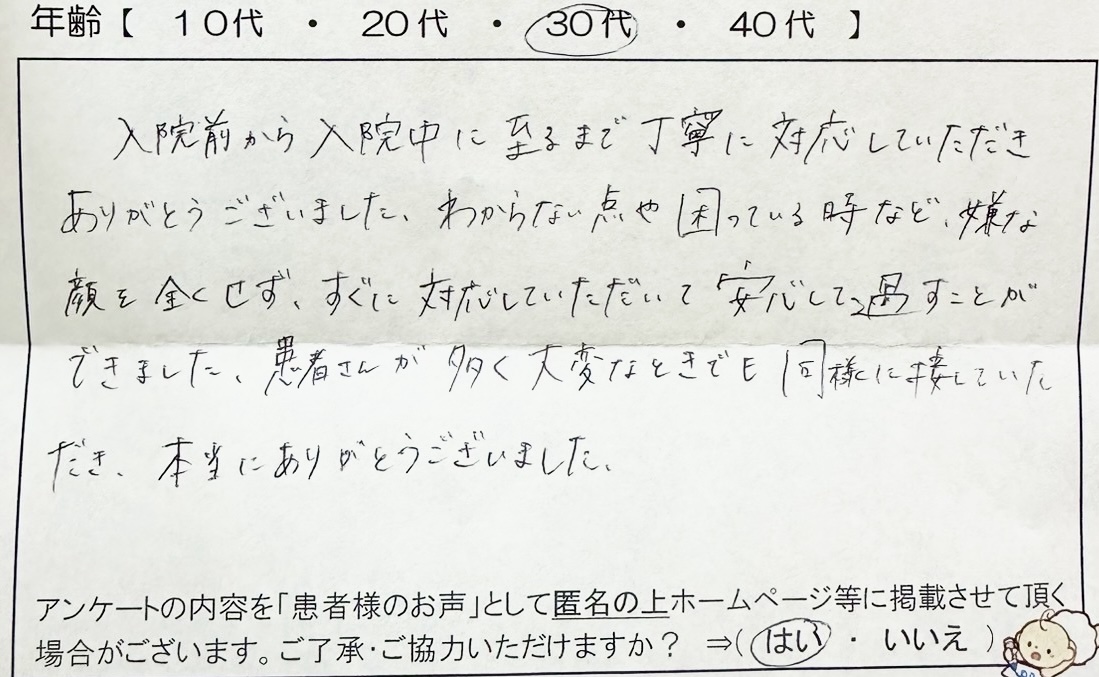 年齢【 10代 ・ 20代 ・ 30代 ・ 40代 】
入院前から入院中に至るまで丁寧に対応していただき
ありがとうございました。わからない点や困っている時など、嫌な
顔を全くせず、すぐに対応していただいて安心して過すことが
できました。患者さんが多く大変なときでも同様に接していた
だき、本当にありがとうございました。
アンケートの内容を「患者様のお声」として匿名の上ホームページ等に掲載させて頂く
場合がございます。ご了承・ご協力いただけますか？ ⇒( はい ・ いいえ )